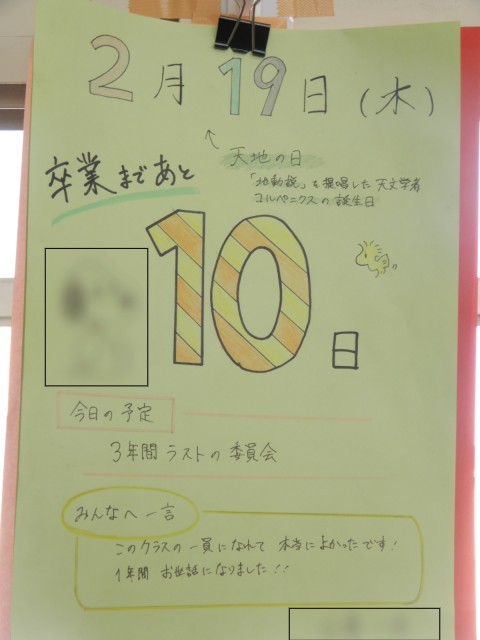 2月19日(木)
天地の日
「地動説」を提唱した天文学者
コルペニクスの誕生日
卒業まであと
10日
今日の予定
3年間ラストの委員会
みんなへ一言
このクラスの一員になれて 本当によかったです!
1年間 お世話になりました!!